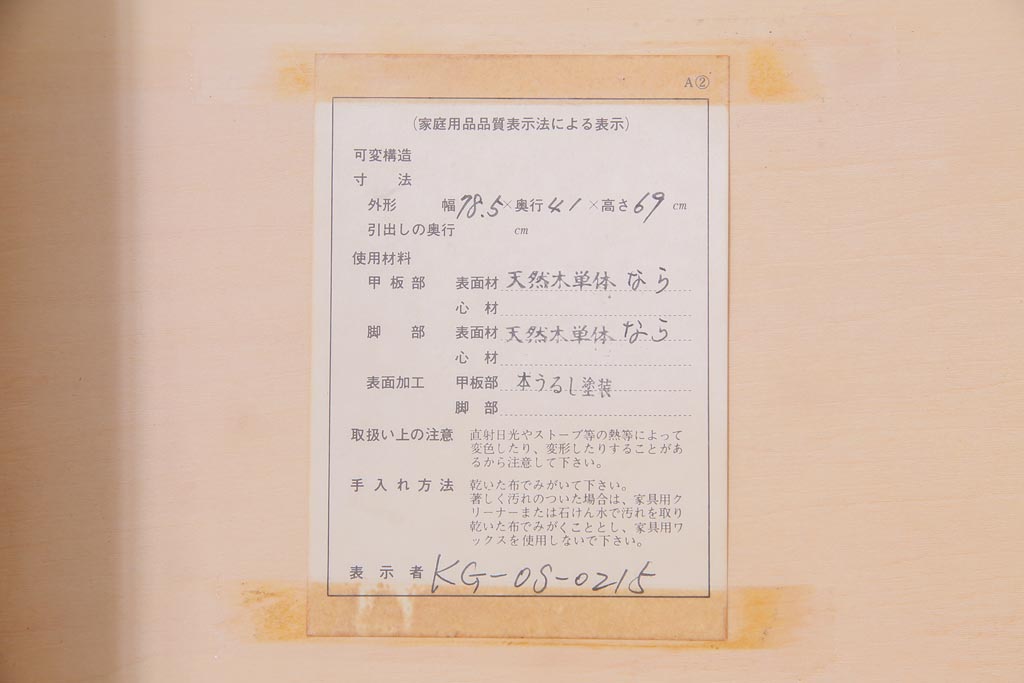 A②
(家庭用品品質表示法による表示)
可変構造
寸 法
外形 幅78.5×奥行41×高さ69cm
引出しの奥行 cm
使用材料
甲板部 表面材 天然木単体 なら
心材
脚部 表面材 天然木単体 なら
心材
表面加工 甲板部 本うるし塗装
脚部
取扱い上の注意 直射日光やストーブ等の熱等によって
変色したり、変形したりすることがあ
るから注意して下さい。
手入れ方法 乾いた布でみがいて下さい。
著しく汚れのついた場合は、家具用ク
リーナーまたは石けん水で汚れを取り
乾いた布でみがくこととし、家具用ワ
ックスを使用しないで下さい。
表示者 KG-OS-0215